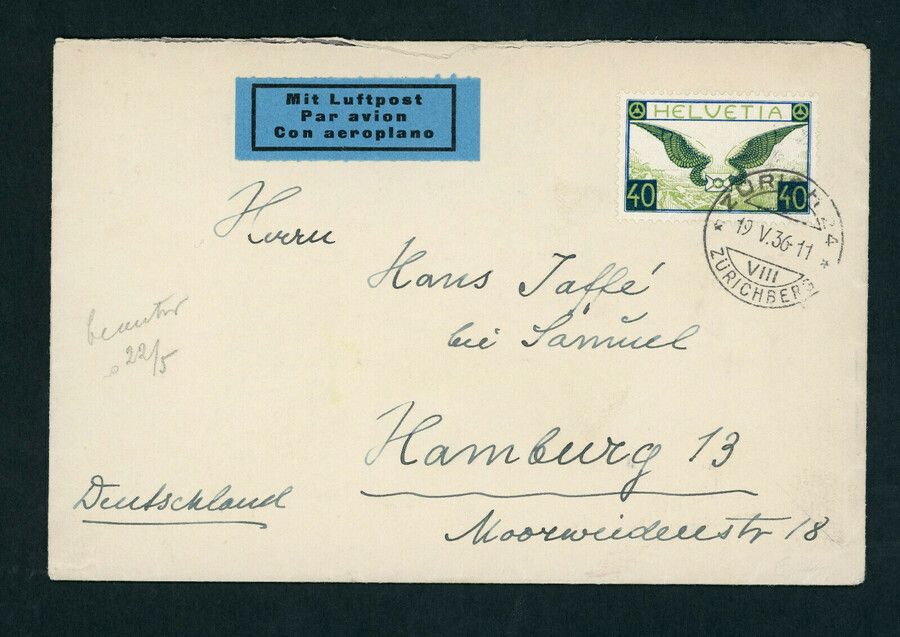 Mit Luftpost
Par avion
Con aeroplano
HELVETIA
40 40
ZÜRICH 24
19.V.36-11
VIII
ZÜRICHBERG
Herrn
Hans Jaffé
bei Samuel
beantw
22/5
Hamburg 13
Deutschland
Moorweidenstr 18